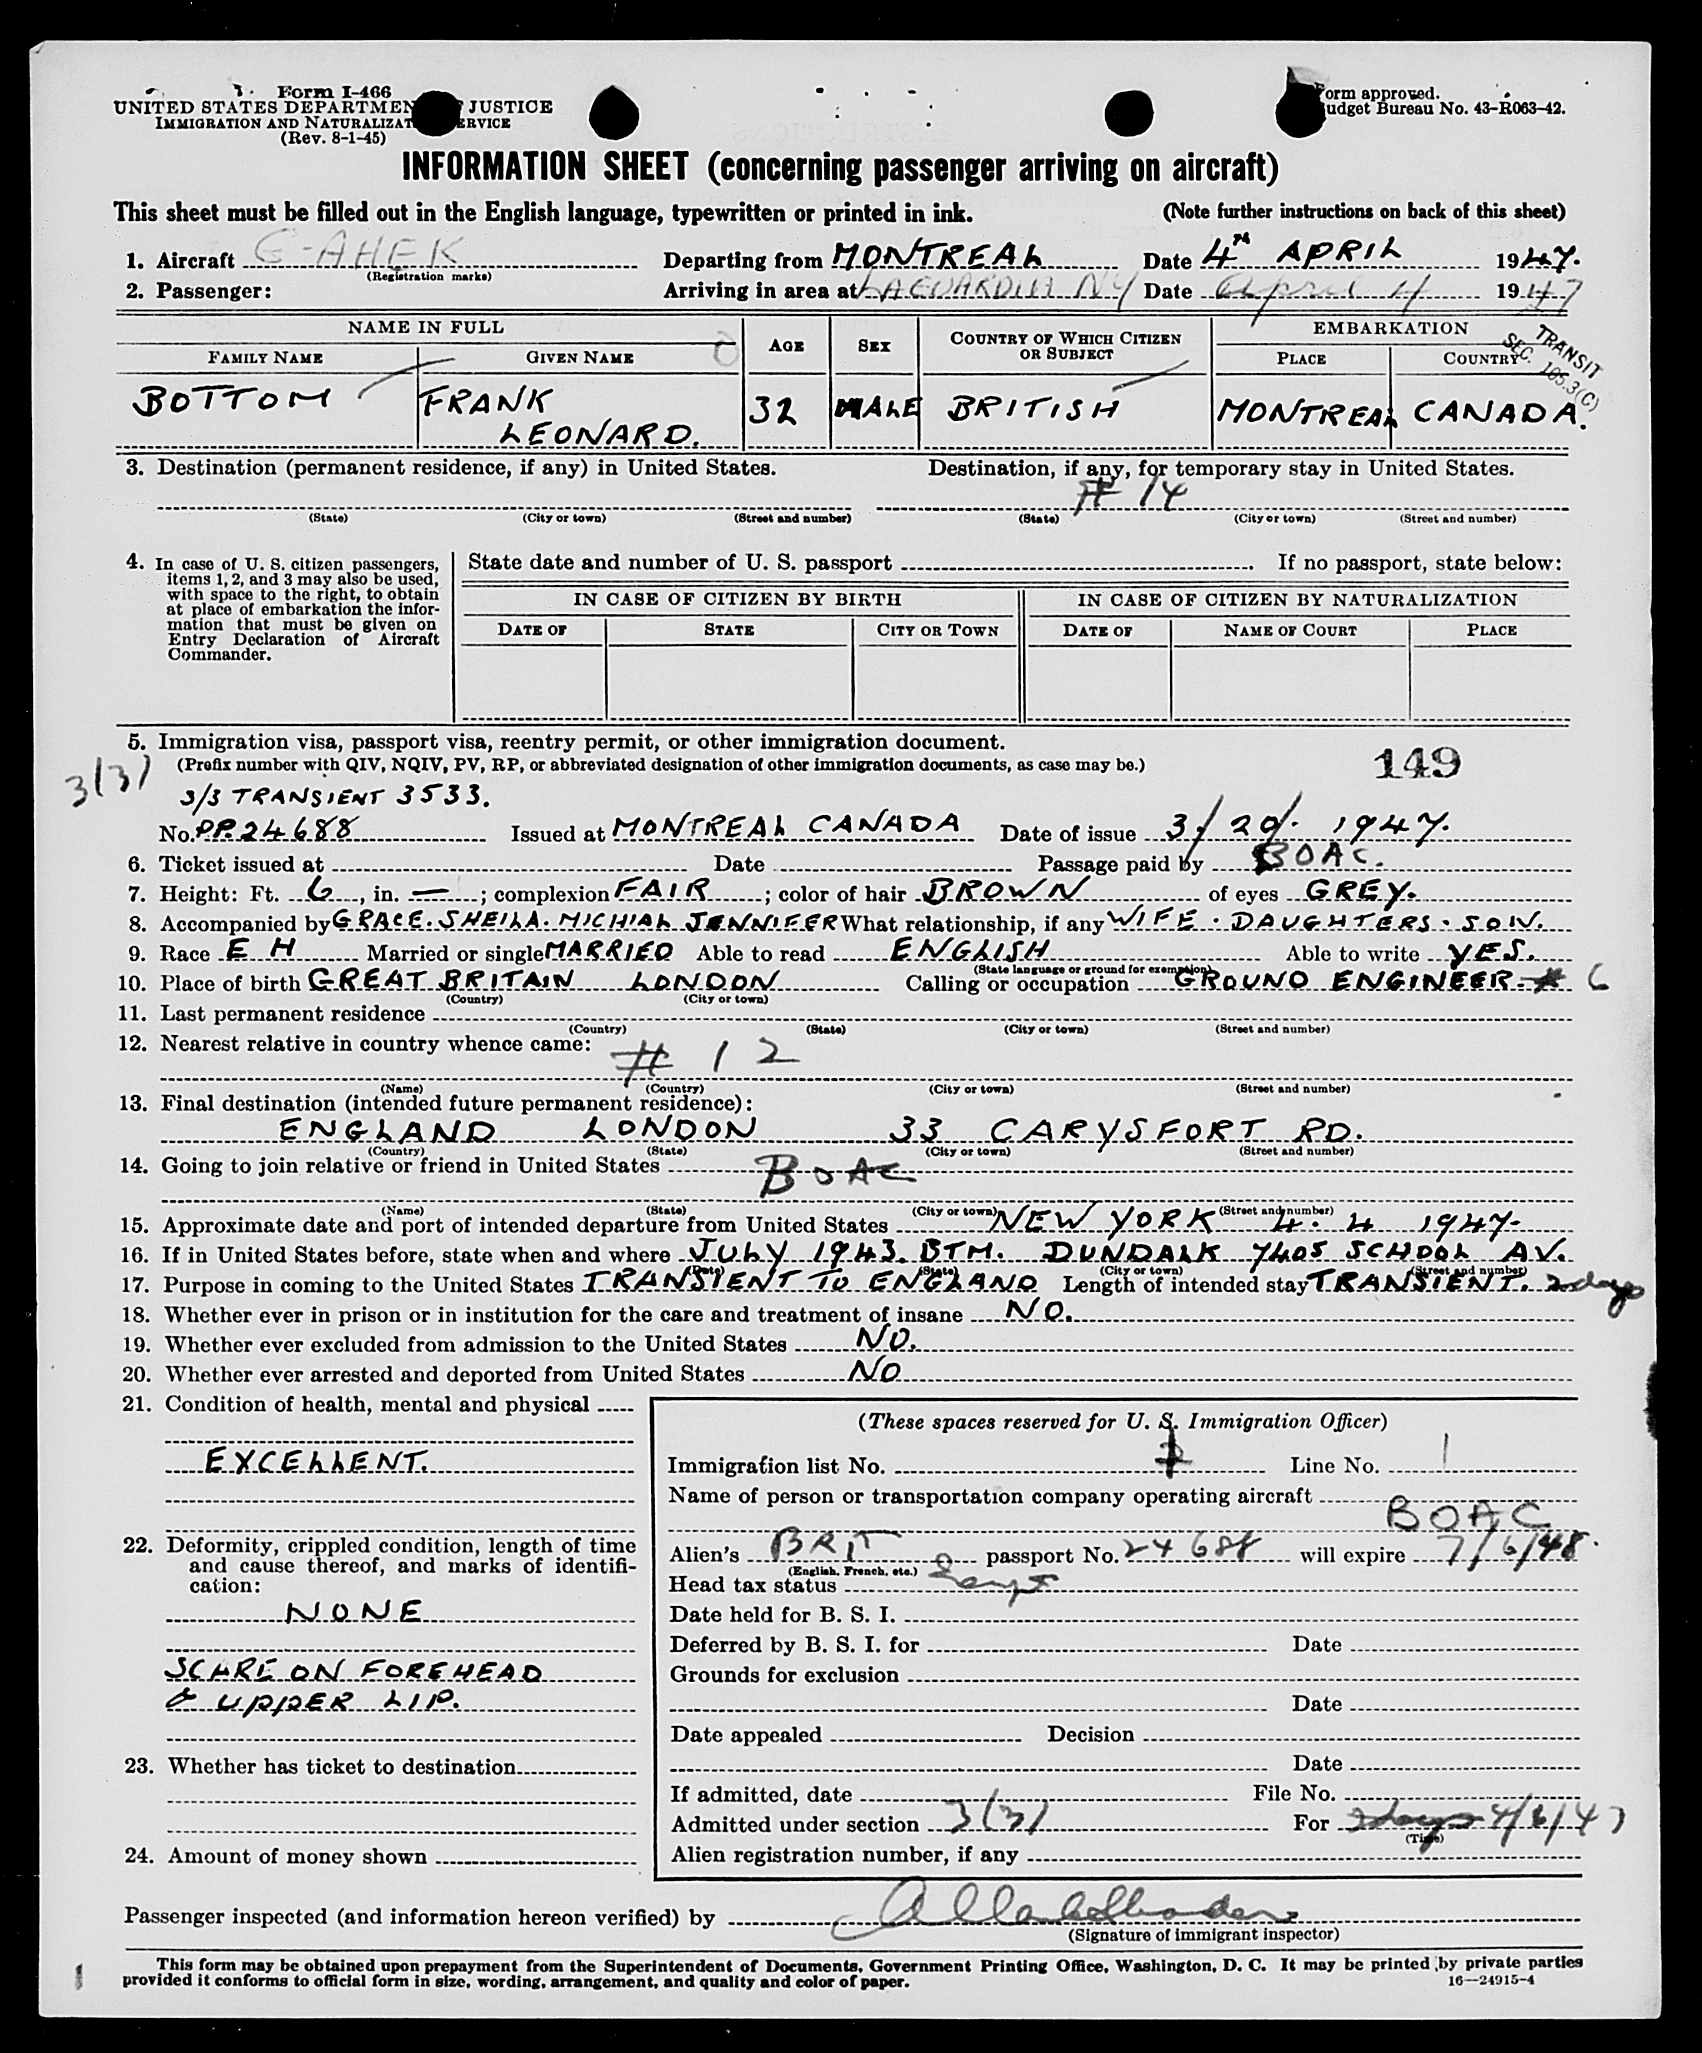 Form I-466
UNITED STATES DEPARTMENT JUSTICE
IMMIGRATION AND NATURALIZAT ERVICE
(Rev. 8-1-45)
Form approved.
Budget Bureau No. 43-R063-42.
INFORMATION SHEET (concerning passenger arriving on aircraft)
This sheet must be filled out in the English language, typewritten or printed in ink. (Note further instructions on back of this sheet)
1. Aircraft G-AHEK Departing from MONTREAL Date 4TH APRIL 1947.
(Registration marks)
2. Passenger: Arriving in area at LAGUARDIA NY Date April 4 1947
NAME IN FULL AGE SEX COUNTRY OF WHICH CITIZEN OR SUBJECT EMBARKATION
FAMILY NAME GIVEN NAME PLACE COUNTRY
TRANSIT
SEC. 105.3(C)
BOTTOM FRANK LEONARD. 32 MALE BRITISH MONTREAL CANADA.
3. Destination (permanent residence, if any) in United States. Destination, if any, for temporary stay in United States.
# 14
(State) (City or town) (Street and number) (State) (City or town) (Street and number)
4. In case of U. S. citizen passengers, items 1, 2, and 3 may also be used, with space to the right, to obtain at place of embarkation the information that must be given on Entry Declaration of Aircraft Commander.
State date and number of U. S. passport . If no passport, state below:
IN CASE OF CITIZEN BY BIRTH IN CASE OF CITIZEN BY NATURALIZATION
DATE OF STATE CITY OR TOWN DATE OF NAME OF COURT PLACE
5. Immigration visa, passport visa, reentry permit, or other immigration document.
(Prefix number with QIV, NQIV, PV, RP, or abbreviated designation of other immigration documents, as case may be.)
149
3(3)
3/3 TRANSIENT 3533.
No. PP.24688 Issued at MONTREAL CANADA Date of issue 3/20/. 1947.
6. Ticket issued at Date Passage paid by BOAC.
7. Height: Ft. 6, in. —; complexion FAIR; color of hair BROWN of eyes GREY.
8. Accompanied by GRACE. SHEILA. MICHIAL JENNIFER What relationship, if any WIFE. DAUGHTERS. SON.
9. Race E H Married or single MARRIED Able to read ENGLISH Able to write YES.
(State language or ground for exemption)
10. Place of birth GREAT BRITAIN LONDON Calling or occupation GROUND ENGINEER # 6
(Country) (City or town)
11. Last permanent residence
(Country) (State) (City or town) (Street and number)
12. Nearest relative in country whence came:
# 12
(Name) (Country) (City or town) (Street and number)
13. Final destination (intended future permanent residence):
ENGLAND LONDON 33 CARYSFORT RD.
(Country) (State) (City or town) (Street and number)
14. Going to join relative or friend in United States
BOAC
(Name) (State) (City or town) (Street and number)
15. Approximate date and port of intended departure from United States NEW YORK 4. 4 1947.
16. If in United States before, state when and where JULY 1943. BTM. DUNDALK 7405 SCHOOL AV.
(Date) (State) (City or town) (Street and number)
17. Purpose in coming to the United States TRANSIENT TO ENGLAND Length of intended stay TRANSIENT. 2 days
18. Whether ever in prison or in institution for the care and treatment of insane NO.
19. Whether ever excluded from admission to the United States NO.
20. Whether ever arrested and deported from United States NO
21. Condition of health, mental and physical
EXCELLENT.
22. Deformity, crippled condition, length of time and cause thereof, and marks of identification:
NONE
SCARE ON FOREHEAD
& UPPER LIP.
23. Whether has ticket to destination
24. Amount of money shown
(These spaces reserved for U. S. Immigration Officer)
Immigration list No. Line No. 1
Name of person or transportation company operating aircraft
BOAC
Alien's BRIT passport No. 24688 will expire 7/6/48.
(English, French, etc.)
Head tax status
Date held for B. S. I.
Deferred by B. S. I. for Date
Grounds for exclusion
Date
Date appealed Decision
Date
If admitted, date File No.
Admitted under section 3(3) For 4/6/47
(Time)
Alien registration number, if any
Passenger inspected (and information hereon verified) by
(Signature of immigrant inspector)
This form may be obtained upon prepayment from the Superintendent of Documents, Government Printing Office, Washington, D. C. It may be printed by private parties
provided it conforms to official form in size, wording, arrangement, and quality and color of paper.
16—24915-4